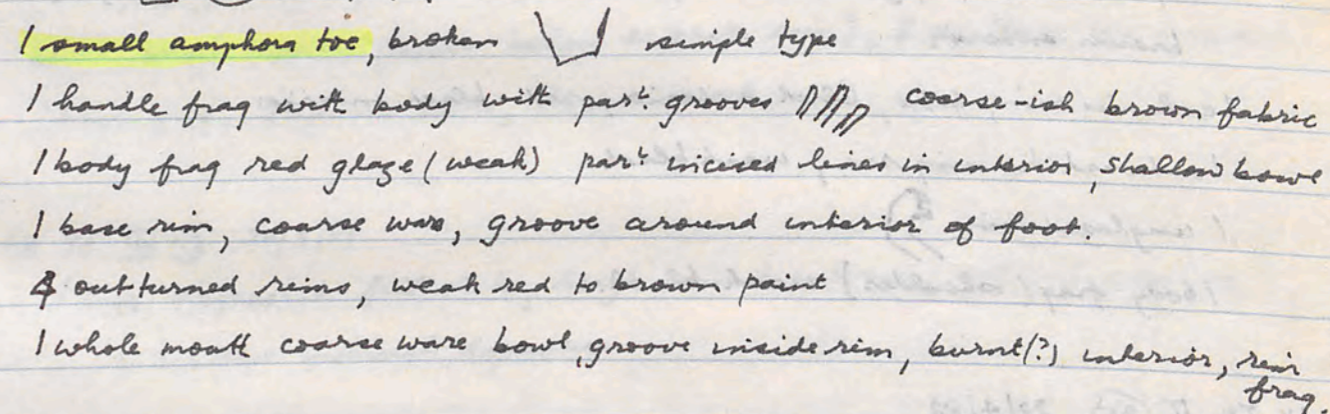 1 small amphora toe, broken simple type
1 handle frag with body with parˡ grooves coarse-ish brown fabric
1 body frag red glaze (weak) parˡ incised lines in interior, shallow bowl
1 base rim, coarse ware, groove around interior of foot.
4 outturned rims, weak red to brown paint
1 whole mouth coarse ware bowl, groove inside rim, burnt(?) interior, rim
frag.